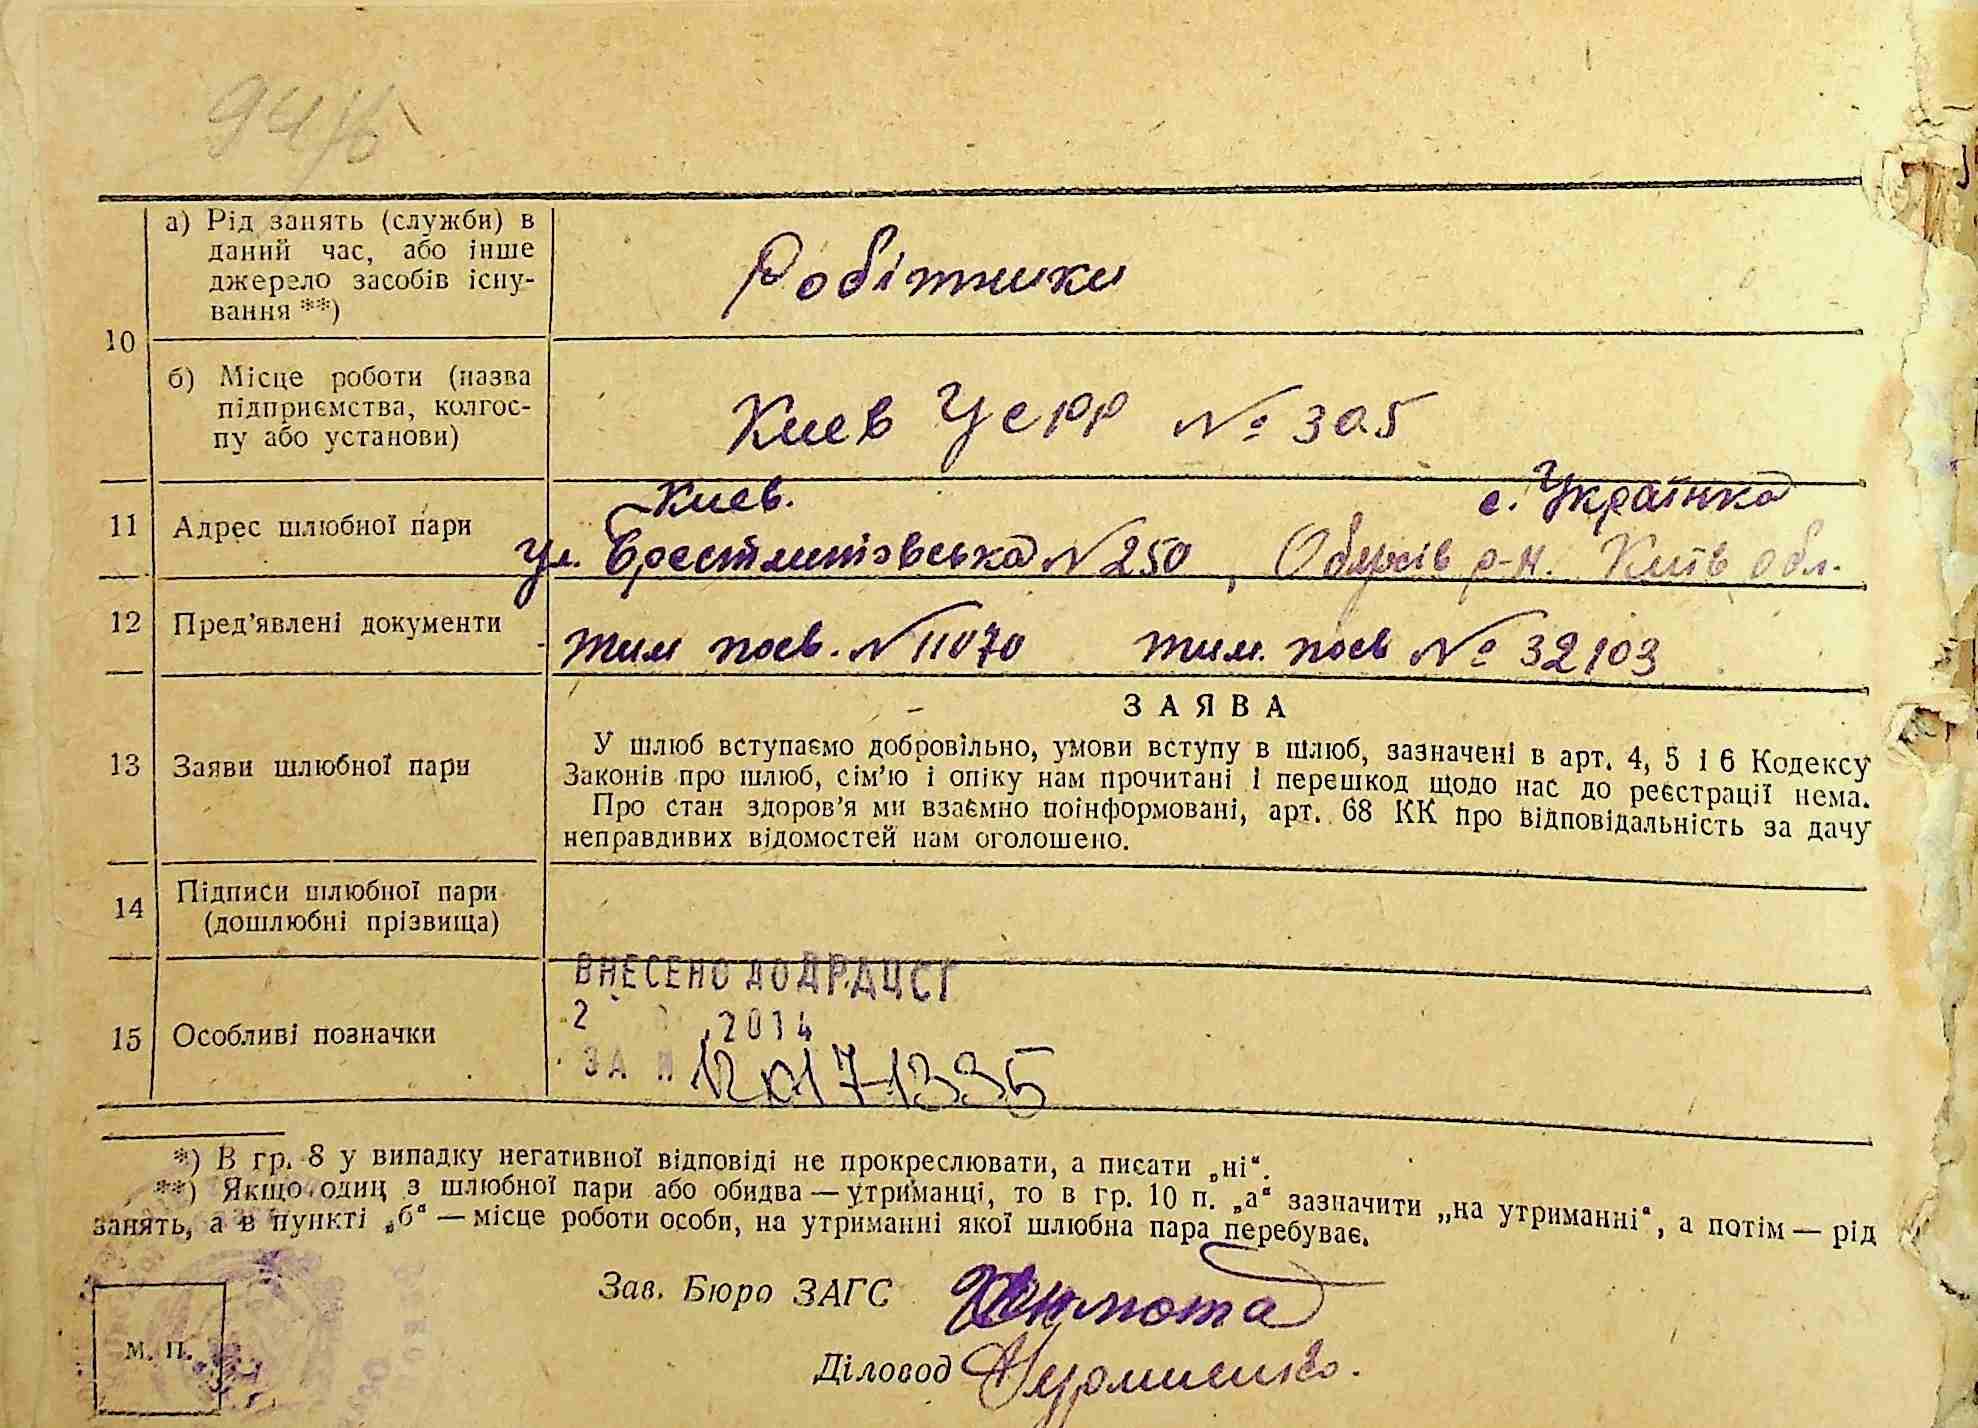 94/б
а) Рід занять (служби) в
даний час, або інше
джерело засобів існу-
вання **)
Робітники
10
б) Місце роботи (назва
підприємства, колгос-
пу або установи)
Киев УСРР № 305
11
Адрес шлюбної пари
Киев.
с. Українка
ул. Брестлитовська № 250, Обухів р-н. Київ обл.
12
Пред’явлені документи
тим посв. № 11070 тим. посв № 32103
ЗАЯВА
13
Заяви шлюбної пари
У шлюб вступаємо добровільно, умови вступу в шлюб, зазначені в арт. 4, 5 і 6 Кодексу
Законів про шлюб, сім’ю і опіку нам прочитані і перешкод щодо нас до реєстрації нема.
Про стан здоров’я ми взаємно поінформовані, арт. 68 КК про відповідальність за дачу
неправдивих відомостей нам оголошено.
14
Підписи шлюбної пари
(дошлюбні прізвища)
15
Особливі позначки
ВНЕСЕНО ДО ДРАЦСГ
2 2014
ЗА №
*) В гр. 8 у випадку негативної відповіді не прокреслювати, а писати „ні“.
**) Якщо один з шлюбної пари або обидва — утриманці, то в гр. 10 п. „а“ зазначити „на утриманні“, а потім — рід
занять, а в пункті „б“ — місце роботи особи, на утриманні якої шлюбна пара перебуває.
Зав. Бюро ЗАГС
Діловод
М. П.